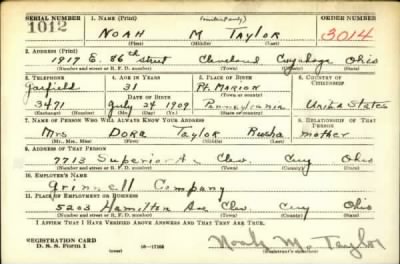 SERIAL NUMBER 1. NAME (Print) ORDER NUMBER
1012 NOAH M TAYLOR 3014
(First) (Middle) (Last)
2. ADDRESS (Print)
1917 E. 86th street Cleveland Cuyahoga Ohio
(Number and street or R. F. D. number) (Town) (County) (State)
3. TELEPHONE 4. AGE IN YEARS 5. PLACE OF BIRTH 6. COUNTRY OF CITIZENSHIP
Garfield 31 Pt. Marion
DATE OF BIRTH (Town or county)
3471 July 24 1909 Pennsylvania United States
(Exchange) (Number) (Mo.) (Day) (Yr.) (State or country)
7. NAME OF PERSON WHO WILL ALWAYS KNOW YOUR ADDRESS 8. RELATIONSHIP OF THAT PERSON
Mrs Dora Taylor mother
(Mr., Mrs., Miss) (First) (Middle) (Last)
9. ADDRESS OF THAT PERSON
7713 Superior Av Clev. Cuy Ohio
(Number and street or R. F. D. number) (Town) (County) (State)
10. EMPLOYER'S NAME
Grinnell Company
11. PLACE OF EMPLOYMENT OR BUSINESS
5203 Hamilton Ave Clev. Cuy Ohio
(Number and street or R. F. D. number) (Town) (County) (State)
I AFFIRM THAT I HAVE VERIFIED ABOVE ANSWERS AND THAT THEY ARE TRUE.
REGISTRATION CARD
D. S. S. Form 1 (over) 16—17105 Noah M. Taylor
(Registrant's signature)